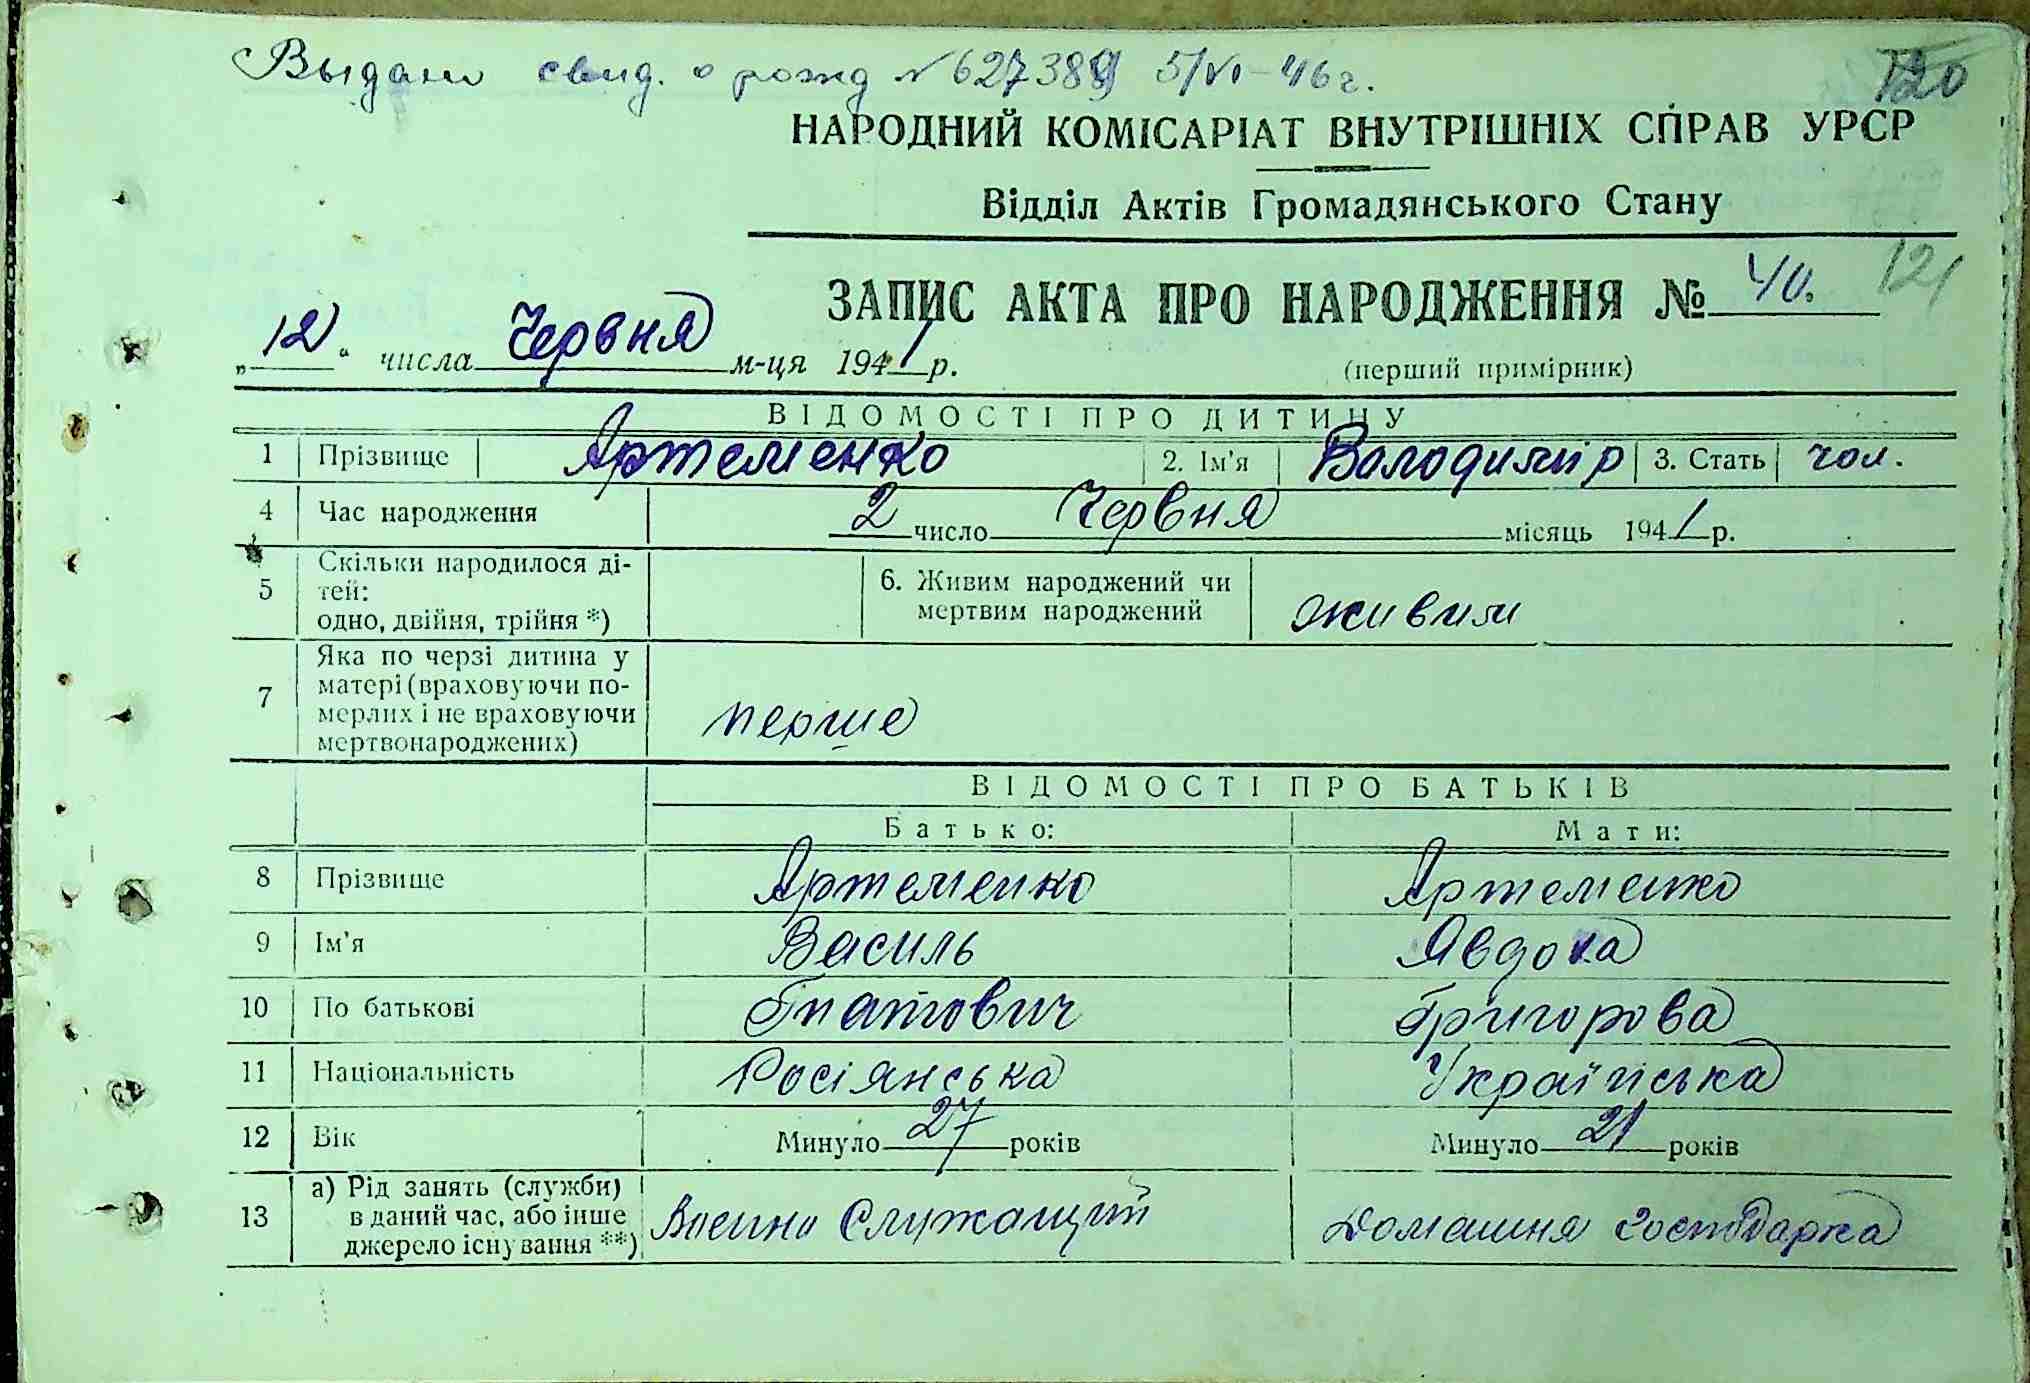 Выдано свид. о рожд № 627389 5/VI-46 г.
120
НАРОДНИЙ КОМІСАРІАТ ВНУТРІШНІХ СПРАВ УРСР
Відділ Актів Громадянського Стану
121
ЗАПИС АКТА ПРО НАРОДЖЕННЯ № 40.
„12" числа Червня м-ця 1941 р.
(перший примірник)
ВІДОМОСТІ ПРО ДИТИНУ
1 Прізвище Артеменко 2. Ім'я Володимир 3. Стать чол.
4 Час народження 2 число Червня місяць 1941 р.
5 Скільки народилося ді-
тей:
одно, двійня, трійня *)
6. Живим народжений чи
мертвим народжений живим
7 Яка по черзі дитина у
матері (враховуючи по-
мерлих і не враховуючи
мертвонароджених) перше
ВІДОМОСТІ ПРО БАТЬКІВ
Батько: Мати:
8 Прізвище Артеменко Артеменко
9 Ім'я Василь Явдоха
10 По батькові Гнатович Григорова
11 Національність Росіянська Українська
12 Вік Минуло 27 років Минуло 21 років
13 а) Рід занять (служби)
в даний час, або інше
джерело існування **) Военно Служащий Домашня господарка